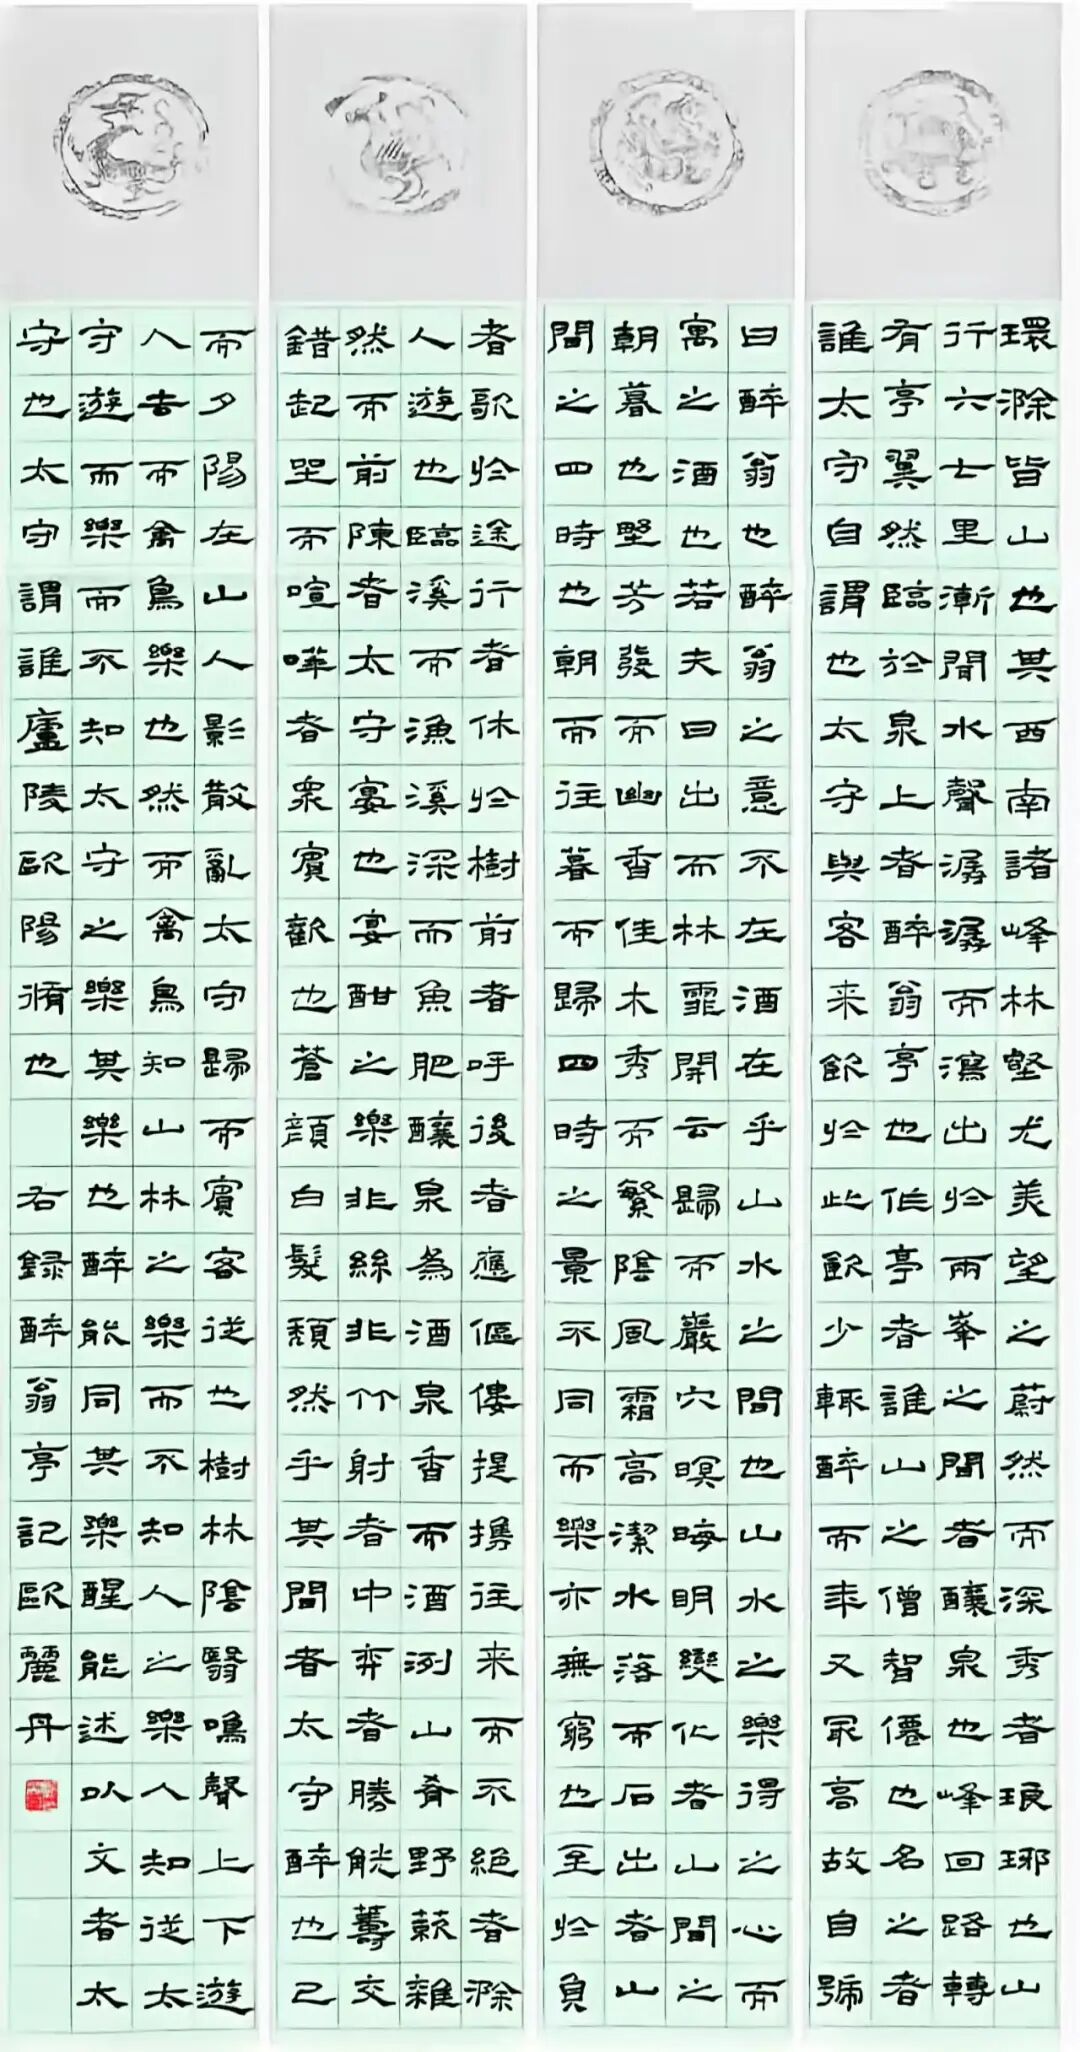 環滁皆山也其西南諸峰林壑尤美望之蔚然而深秀者琅琊也山
行六七里漸聞水聲潺潺而瀉出於兩峯之間者釀泉也峰回路轉
有亭翼然臨於泉上者醉翁亭也作亭者誰山之僧智僊也名之者
誰太守自謂也太守與客来飲於此飲少輒醉而年又冣高故自號
曰醉翁也醉翁之意不在酒在乎山水之間也山水之樂得之心而
寓之酒也若夫日出而林霏開云歸而巖穴暝晦明變化者山間之
朝暮也野芳發而幽香佳木秀而繁陰風霜高潔水落而石出者山
間之四時也朝而往暮而歸四時之景不同而樂亦無窮也至於負
者歌於途行者休於樹前者呼後者應傴僂提携往来而不絕者滁
人遊也臨溪而漁溪深而魚肥釀泉為酒泉香而酒洌山肴野蔌雜
然而前陳者太守宴也宴酣之樂非絲非竹射者中弈者勝觥籌交
錯起坐而喧嘩者眾賓歡也蒼顏白髮頹然乎其間者太守醉也已
而夕陽在山人影散亂太守歸而賓客從也樹林陰翳鳴聲上下遊
人去而禽鳥樂也然而禽鳥知山林之樂而不知人之樂人知從太
守遊而樂而不知太守之樂其樂也醉能同其樂醒能述以文者太
守也太守謂誰廬陵歐陽脩也 右録醉翁亭記歐麗丹